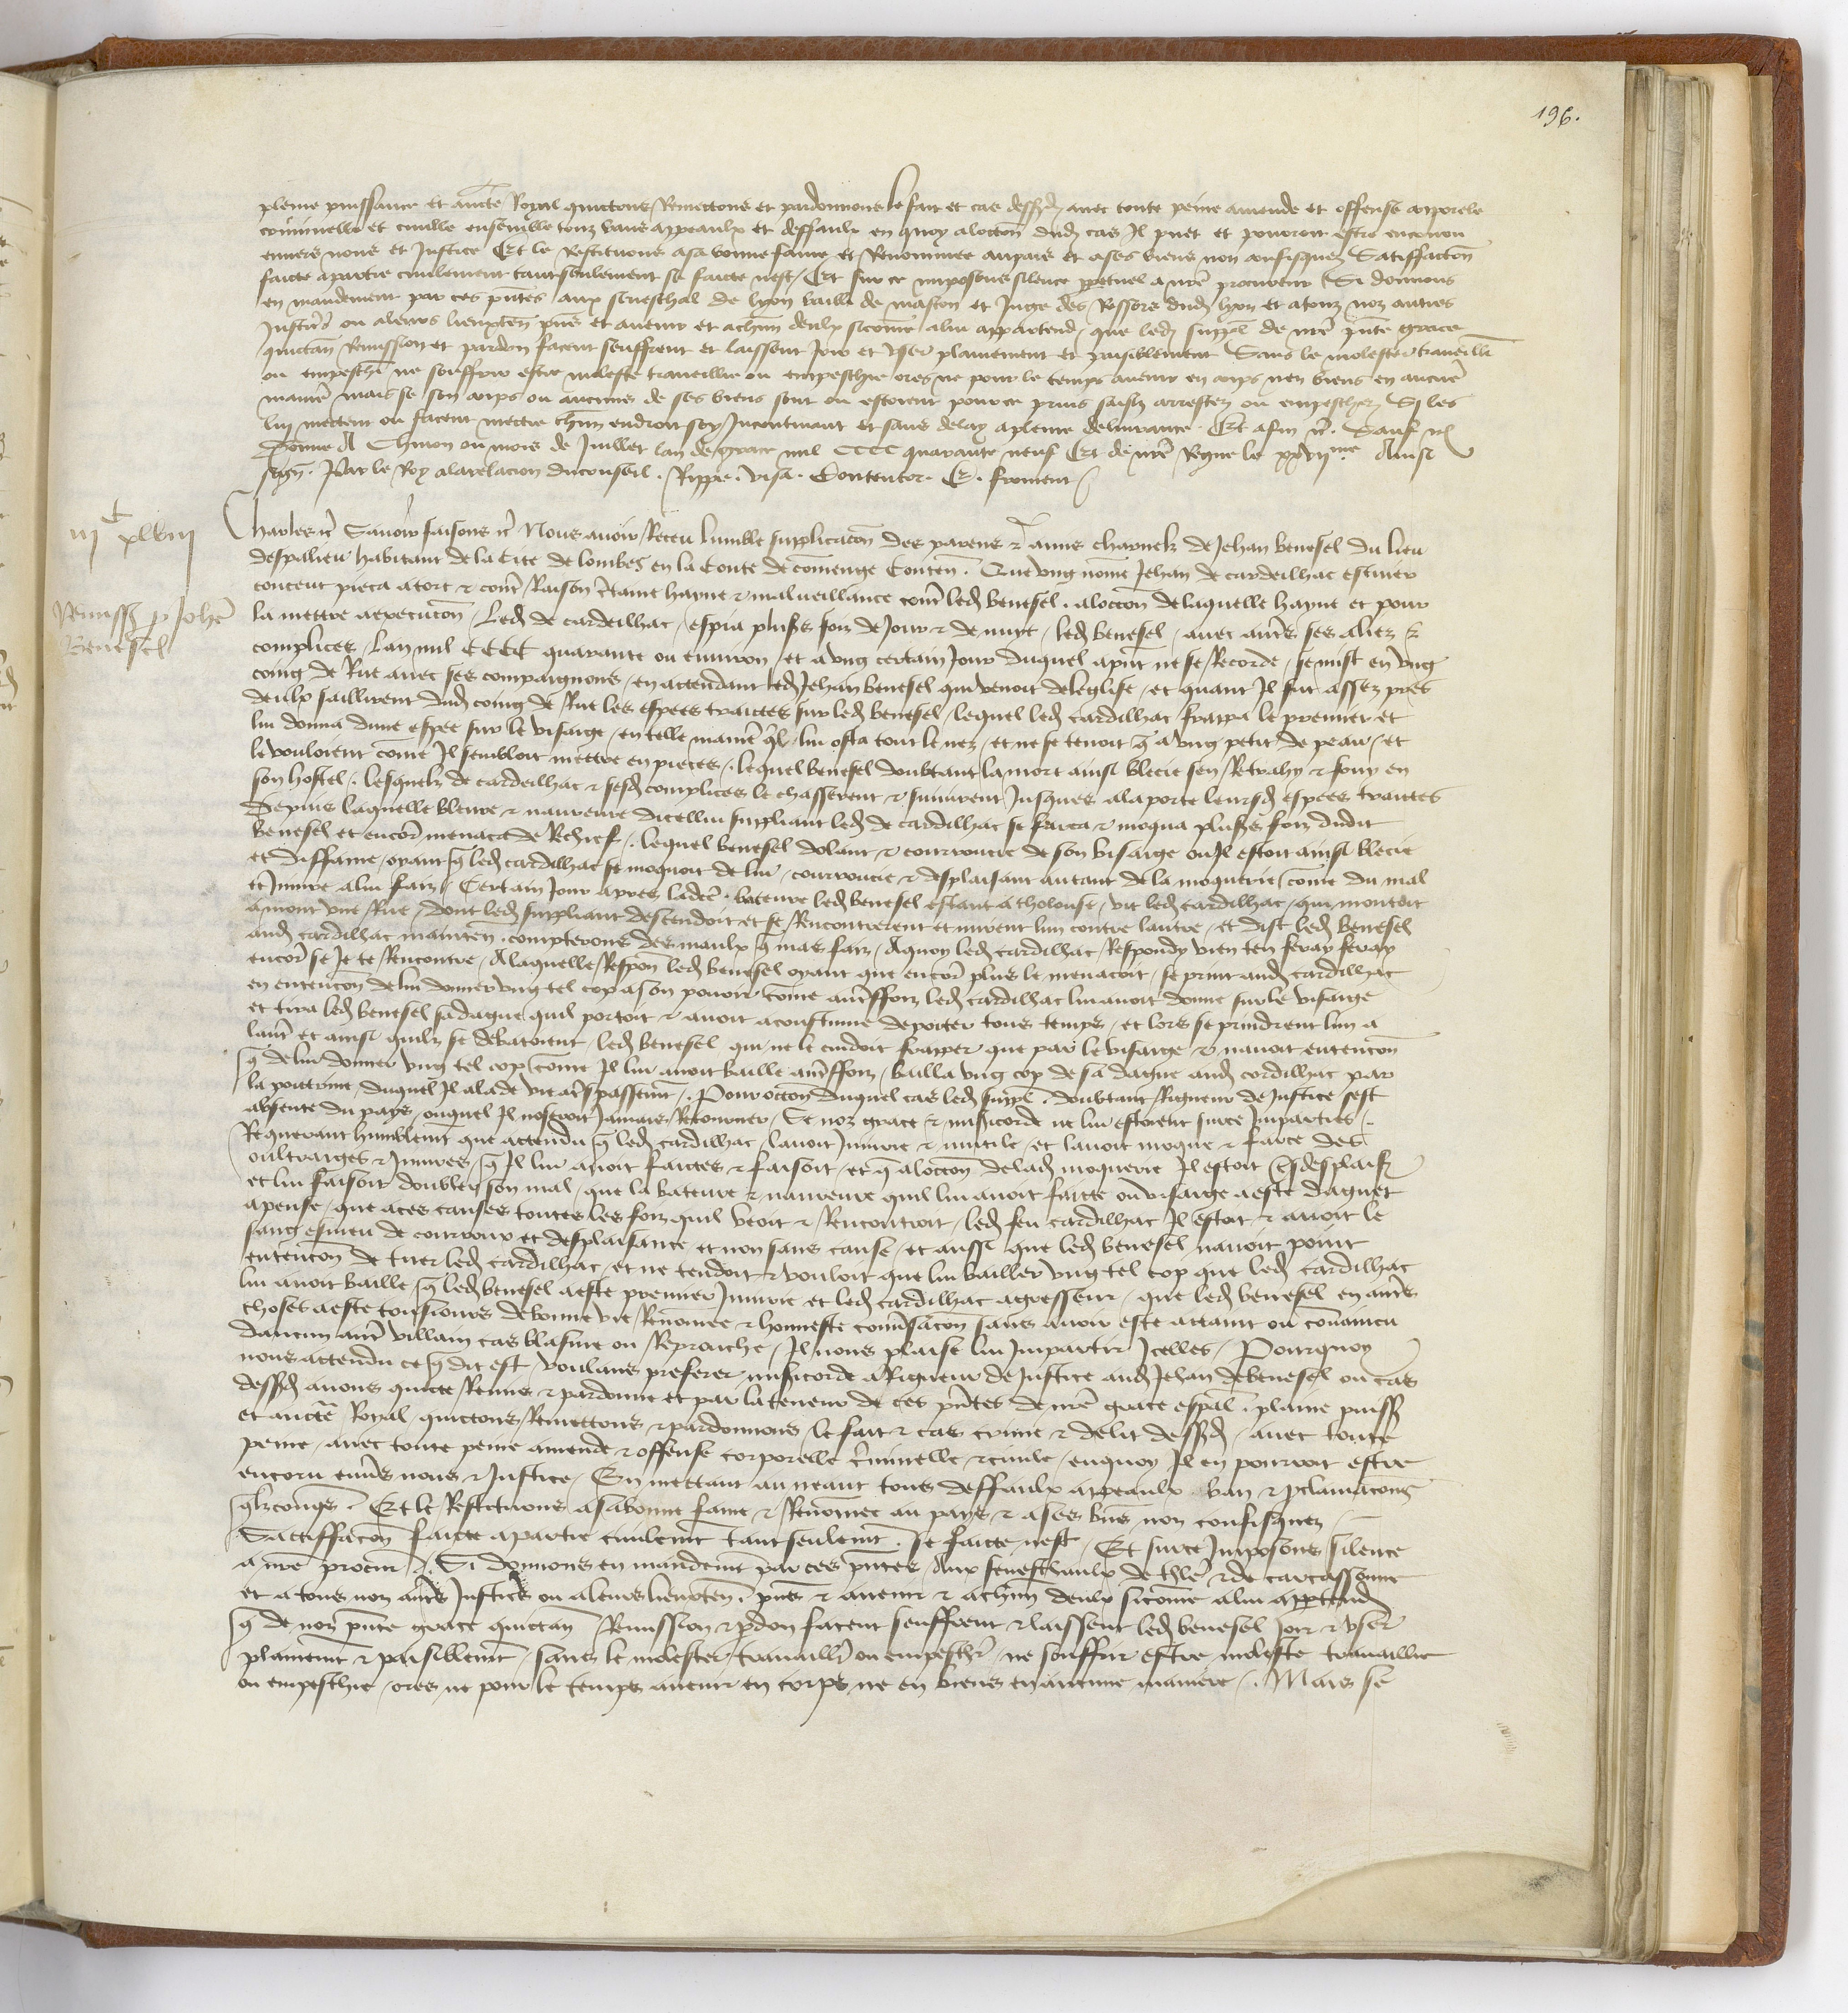 196.
pleine puissance et aucte Royal quictons Remectons et pardonnons le fait et cas dessusd avec toute peine amende et offense corporele
criminelle et civille ensemble touz bans appeaulx et deffaulx en quoy aloccon dud cas Il puet et pourroit estre encouru
envers nous et Justice Et le Restituons a sa bonne fame et Renommee au pais et a ses biens non confisquez Satiffaccon
faicte a partie civilement tant seulement se faicte nest Et sur ce imposons silence ppetuel a nre procureur Si donnons
en mandement par ces pntes aux seneschal de lyon bailli de mascon et Juge des Ressors dud lyon et a touz noz autres
Justiciers ou a leurs lieuxten pns et avenir et a chun deulx sicome a lui appartend que led suppl de nre pnte grace
quictan Remission et pardon facent seuffrent et laissent Joir et User plainement et paisiblement Sans le molester traveilli
ou empeschi ne souffrir estre moleste traveillie ou empeschie ores ne pour le temps avenir en corps nen biens en aucune
maniere mais se son corps ou aucuns de ses biens sont ou estoient pour ce prins saisiz arrestez ou empeschez Si les
lui mectent ou facent mectre chun endroit soy Incontinant et sans delay a pleine delivrance Et afin etc Sauf etc
Donne A Chinon ou mois de Juillet lan de grace mil CCCC quarante neuf Et de nre Regne le xxvijme Ainsi
sign. Par le Roy a la relacion du conseil. Rippe. visa. Contentor. E. froment
iijc xlviij
Remiss p Johe
Benesel
Charles etc Savoir faisons etc Nous avoir Receu lumble supplicacon des parens & amis charnelz de Jehan benesel du lieu
despalieu habitant de la Cite de lombes en la Conte de comenge Conten. Que ung nome Jehan de cardeilhac escuier
conceut pieca a tort & contre Raison Certaine hayne & malveillance contre led benesel. aloccon de laquelle hayne et pour
la mettre a execucon. Led de cardeilhac espia pluss foiz de Jour & de nuyt led benesel avec autres ses aliez &
complices Lan mil CCCC quarante ou environ et a ung certain Jour duquel a pnt ne se Recorde se mist en ung
coing de Rue avec ses compaignons en actendant led Jehan benesel qui venoit de leglise et quant Il fut assez pres
deulx saillirent dud coing de Rue les espees traictes sur led benesel lequel led cardilhac frappa le premier et
lui donna dune espee sur le visaige en telle maniere ql lui osta tout le nez et ne se tenoit que a ung petit de peau et
le vouloient come Il sembloit mettre en pieces. lequel benesel doubtant la mort ainsi blecie sen Retrahy & fouy en
son hostel. lesquelz de cardeilhac & sesd complices le chasserent & suivirent Jusques a la porte leursd espees traictes
Depuis laquelle bleure & navreure dicellui suppliant led de cardilhac se farca & moqua pluss foiz dudit
benesel et encore menace de Rechief. lequel benesel dolant & courroucie de son visaige ou Il estoit ainsi blecie
et diffame oyant que led cardilhac se moquoit de lui courroucie & desplaisant autant de la moquerie come du mal
et Injure a lui faiz Certain Jour apres lade bateure led benesel estant a tholouse vit led cardilhac qui montoit
a mont une Rue dont led suppliant descendoit et se Rencontrerent et vindrent lun contre lautre et dist led benesel
aud cardilhac mainten compterons des maulx que mas faiz A quoy led cardilhac Respondy bien ten feray feray
encores se Je te Rencontre A laquelle Respon led benesel oyant que encore plus le menacoit se print aud cardilhac
en entencon de lui donner ung tel cop a son povoir come autreffoiz led cardilhac lui avoit donne sur le visaige
et tira led benesel sa dague quil portoit & avoit acoustume de porter tous temps et lors se prindrent lun a
lautre et ainsi quilz se debatoient led benesel qui ne le cuidoit frapper que par le visaige & navoit entencon
que de lui donner ung tel cop come Il lui avoit baille autreffoiz bailla ung cop de sa dague aud cardilhac par
la poictrine duquel Il ala de vie a trespassemt. Pour occon duquel cas led suppl. doubtant Rigueur de Justice sest
absente du pays ouquel Il noseroit Jamais Retourner Se noz grace & misericorde ne lui estoient sur ce Imparties.
Requerant humblemt que actendu que led cardilhac lavoit Injurie & mutile et lavoit moque & farce des
oultraiges & Injures que Il lui avoit faictes & faisoit et que aloccon de lad moquerie Il estoit tres desplais
et lui faisoit doubler son mal que la bateure & navreure quil lui avoit faicte ou visaige a este daguet
apense que a ces causes toutes les foiz quil veoit & Rencontroit led feu cardilhac Il estoit & avoit le
sang esmeu de courroux et desplaisance et non sans cause et aussi que led benesel navoit point
entencon de tuer led cardilhac et ne tendoit & vouloit que lui bailler ung tel cop que led cardilhac
lui avoit baille que led benesel a este premier Injurie et led cardilhac agresseur que led benesel en autres
choses a este tousiours de bonne vie Renomee & honneste conversacon sans avoir este actaint ou convaincu
daucun autre villain cas blasme ou Reprouche Il nous plaise lui Impartir Icelles Pourquoy
nous actendu ce que dit est voulans preferer misericorde a Rigueur de Justice aud Jehan de benesel ou cas
dessusd avons quicte Remis & pardonne et par la teneur de ces pntes de nre grace espal plaine puiss
et aucte Royal quictons Remettons & pardonnons le fait & cas crime & delit dessusd avec toute
peine avec toute peine amende & offense corporelle criminelle & civile en quoy Il en pourroit estre
encoru envers nous & Justice En mettant au neant tous deffaulx appeaulx ban & pclamacons
qlzconques. Et le Restituons a sa bonne fame & Renomee au pays & a ses biens non confisquez
Satiffacon faicte a partie civilemt tant seulemt. se faicte nest Et sur ce Imposons silence
a nre procur. Si donnons en mandemt par ces pntes Aux seneschaulx de thle & de carcassonne
et a tous noz autres Justiciers ou a leurs lieuxten. pns & avenir & a chun deulx sicome a lui apptend
que de noz pnte grace quictan Remission & pdon facent seuffrent & laissent led benesel Joir & user
plainemt & paisiblemt sans le molester travailli ou empeschi ne souffrir estre moleste travaillie
ou empeschie ores ne pour le temps avenir en corps ne en biens en aucune maniere. Mais se